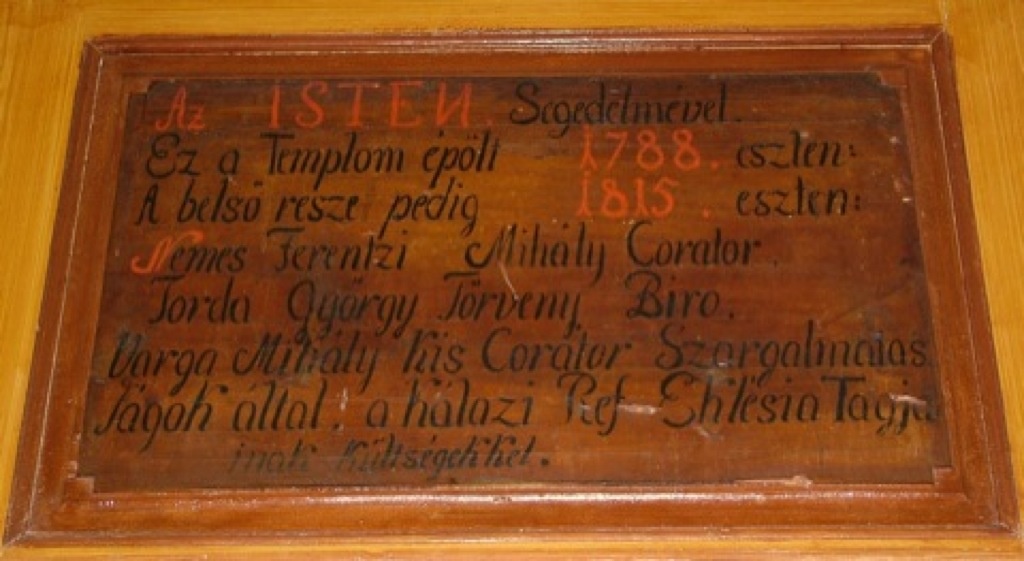 Az ISTEN Segedelmével.
Ez a Templom épölt 1788. eszten:
A belső resze pedig 1815. eszten:
Nemes Ferentzi Mihály Corator.
Torda György Törveny Biro.
Varga Mihály Kis Corátor Szorgalmatas
ságok által, a hálazi Ref Ekhlésia Tagja
inak Költségekkel.